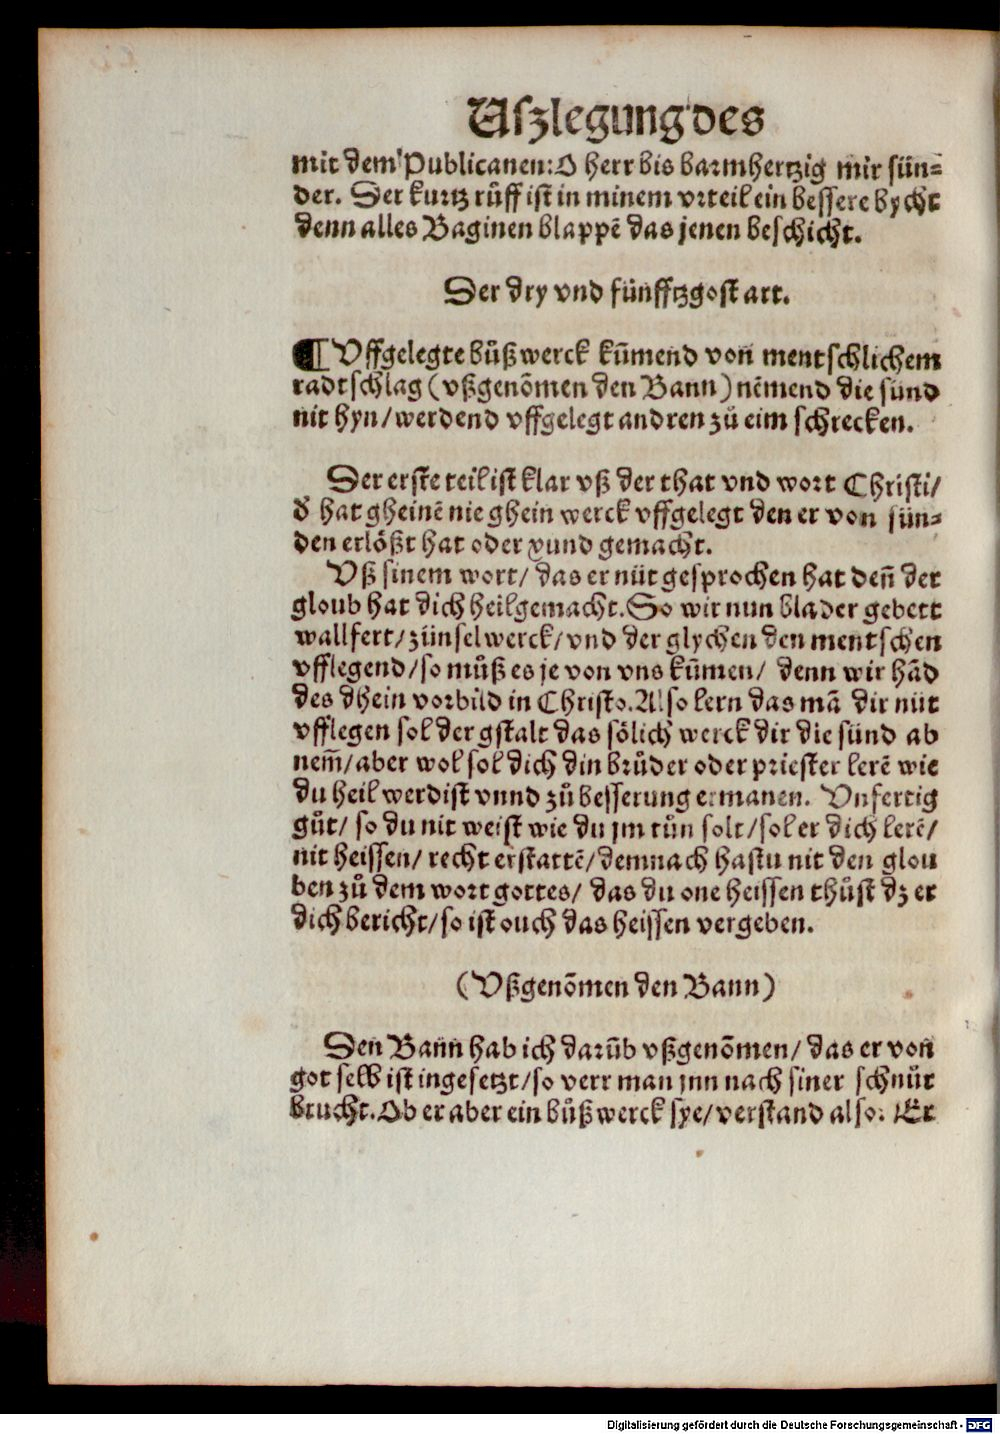 Uſzlegung des
mit dem Publicanen: O herr bis barmhertzig mir ſün⸗
der. Der kurtz rüff iſt in minem vrteil ein beſſere bycht
denn alles Baginen blappē das jenen beſchicht.
Der dry vnd fünfftzgoſt art.
¶ Vffgelegte bůßwerck kūmend von mentſchlichem
radtſchlag (vßgenōmen den Bann) nēmend die ſünd
nit hyn/ werdend vffgelegt andren zů eim ſchrecken.
Der erſte teil iſt klar vß der that vnd wort Chriſti/
d̓ hat gheinē nie ghein werck vffgelegt den er von ſün⸗
den erlößt hat oder gſund gemacht.
Vß ſinem wort/ das er nüt geſprochen hat deñ der
gloub hat dich heil gemacht. So wir nun blader gebett
wallfert/ zünſelwerck/ vnd der glychen den mentſchen
vfflegend/ ſo můß es je von vns kūmen/ denn wir hād
des dhein vorbild in Chriſto. Alſo lern das mā dir nüt
vfflegen ſol der gſtalt das ſölich werck dir die ſünd ab
nem̄/ aber wol ſol dich din brůder oder prieſter lerē wie
du heil werdiſt vnnd zů beſſerung ermanen. Vnfertig
gůt/ ſo du nit weiſt wie du jm tůn ſolt/ ſol er dich lerē/
nit heiſſen/ recht erſtattē/ demnach haſtu nit den glou
ben zů dem wort gottes/ das du one heiſſen thůſt dz er
dich bericht/ ſo iſt ouch das heiſſen vergeben.
(Vßgenōmen den Bann)
Den Bann hab ich darūb vßgenōmen/ das er von
got ſelb iſt ingeſetzt/ ſo verr man jnn nach ſiner ſchnůr
brucht. Ob er aber ein bůßwerck ſye/ verſtand alſo: Er
Digitalisierung gefördert durch die Deutsche Forschungsgemeinschaft - DFG